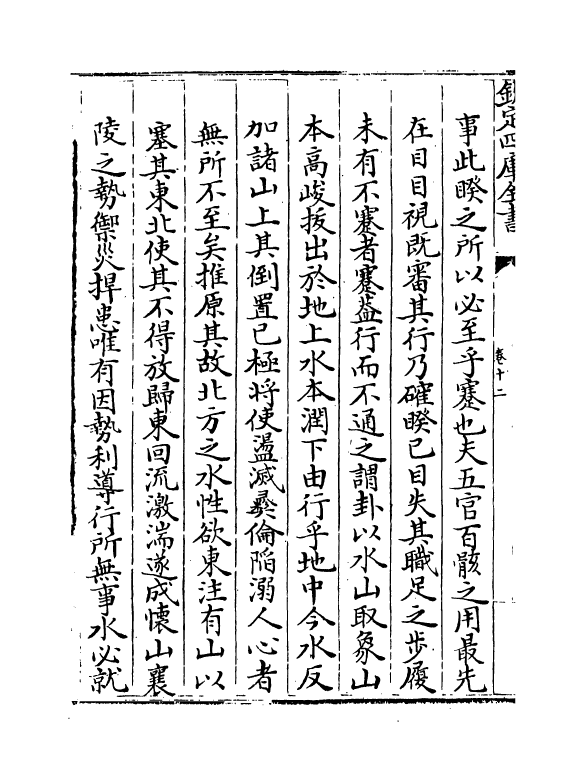 欽定四庫全書
卷十二
事此睽之所以必至乎蹇也夫五官百骸之用最先
在目目視既審其行乃確睽已目失其職足之步履
未有不蹇者蹇葢行而不通之謂卦以水山取象山
本高峻拔出於地上水本潤下由行乎地中今水反
加諸山上其倒置已極將使盪滅彞倫陷溺人心者
無所不至矣推原其故北方之水性欲東注有山以
塞其東北使其不得放歸東回流激湍遂成懷山襄
陵之勢禦災捍患唯有因勢利導行所無事水必就